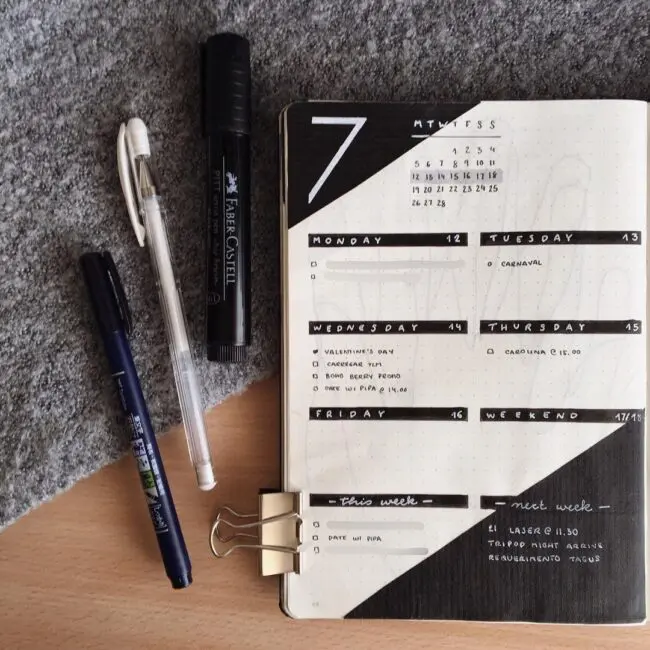 PITT artist pen
FABER-CASTELL
7
M T W T F S S
1 2 3 4
5 6 7 8 9 10 11
12 13 14 15 16 17 18
19 20 21 22 23 24 25
26 27 28
MONDAY 12
TUESDAY 13
CARNAVAL
WEDNESDAY 14
VALENTINE'S DAY
CARREGAR TLM.
BOHO BERRY PROMO
DATE W/ PIPA @ 14.00
THURSDAY 15
CAROLINA @ 15.00
FRIDAY 16
WEEKEND 17/18
- this week -
DATE W/ PIPA
- next week -
21 LASER @ 11.30
TRIPOD MIGHT ARRIVE
REQUERIMENTO TAGUS